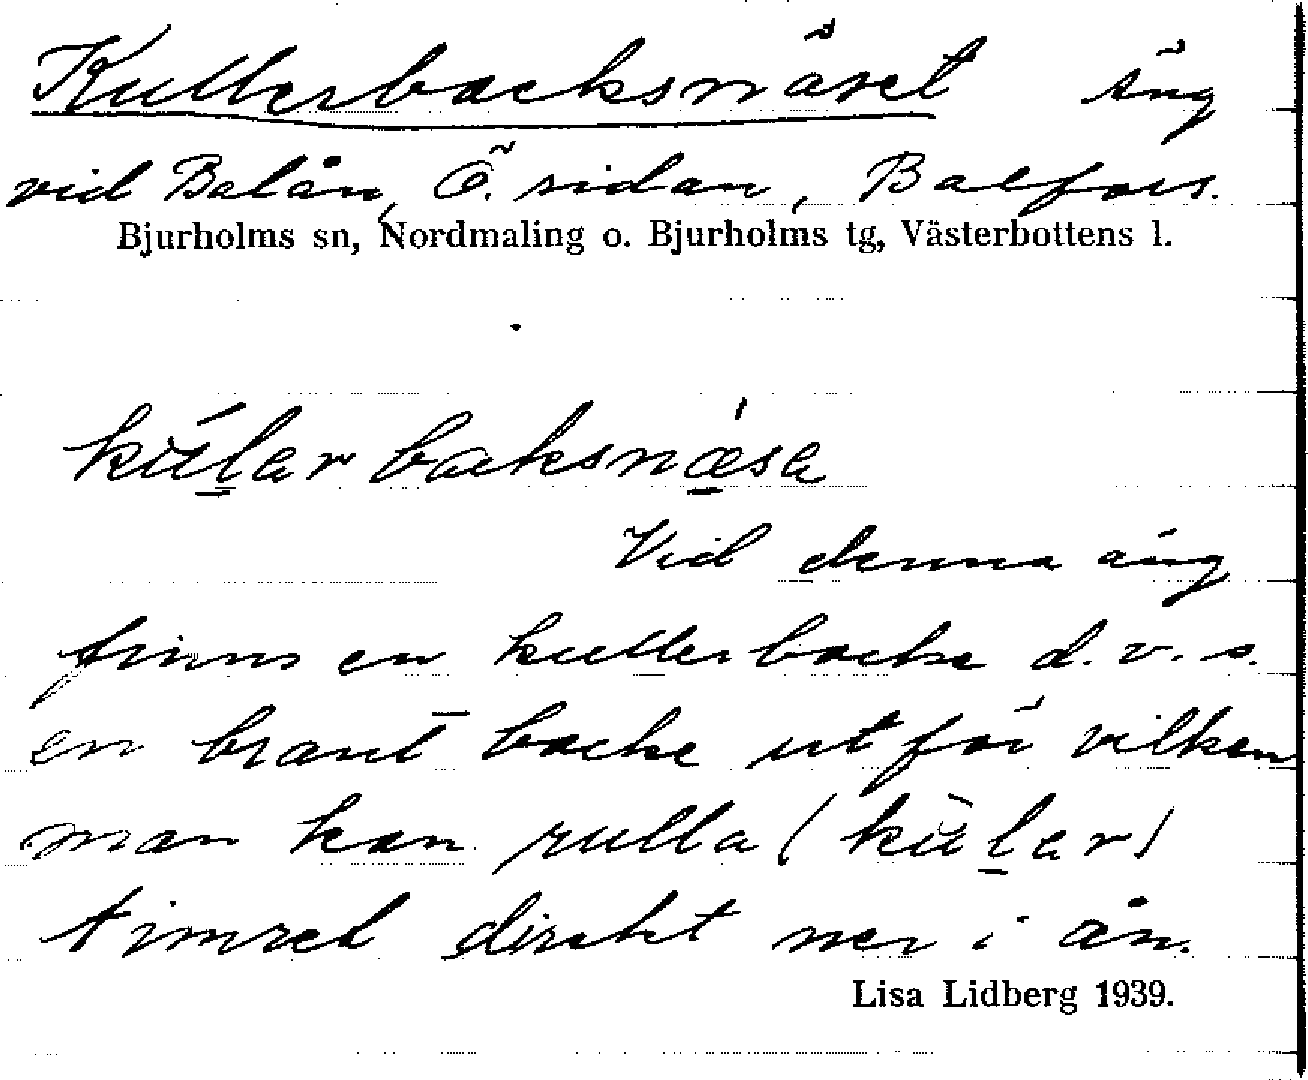 Kullerbacksnäset äng
vid Balån, Ö. sidan, Balfors.
Bjurholms sn, Nordmaling o. Bjurholms tg, Västerbottens l.
kúlar backsnæsa
Vid denna äng
finns en kullerbacke d.v.s.
en brant backe utför vilken
man kan rulla (kùlar)
timret direkt ner i ån.
Lisa Lidberg 1939.